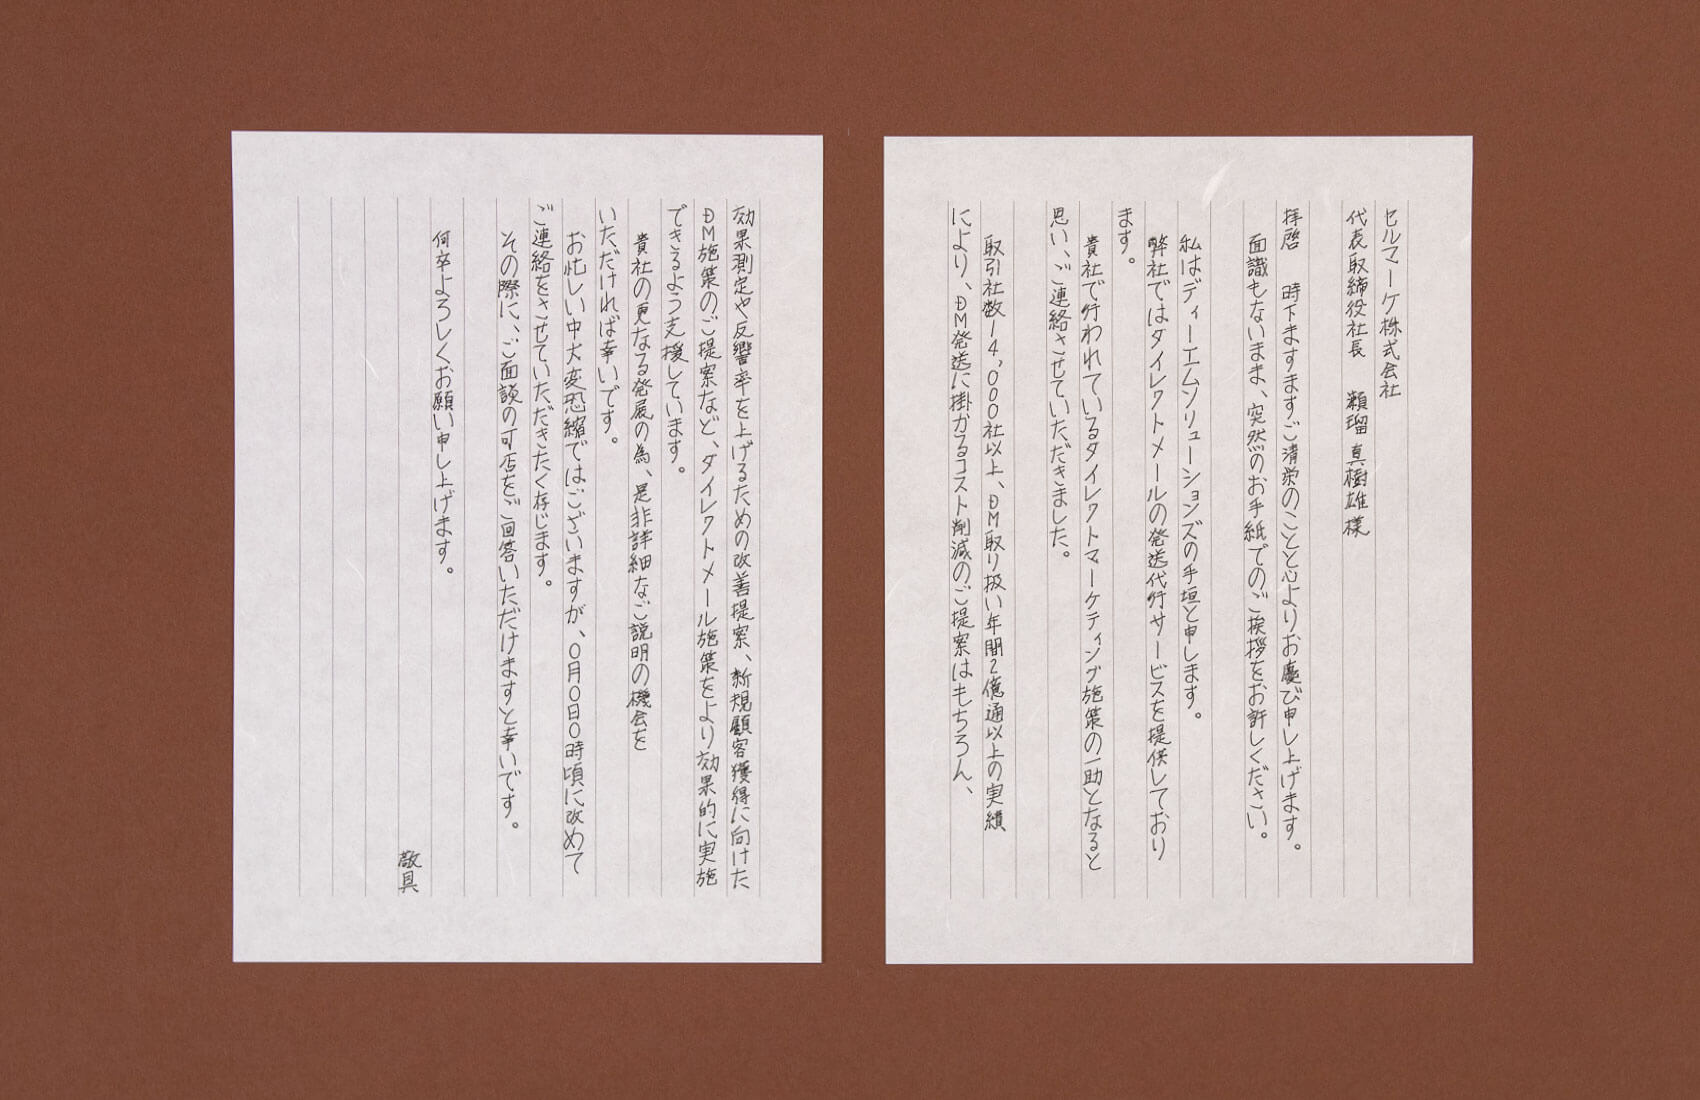 セルマーケ株式会社
代表取締役社長　瀬瑠 真樹雄 様
拝啓　時下ますますご清栄のことと心よりお慶び申し上げます。
面識もないまま、突然のお手紙でのご挨拶をお許しください。
私はディーエムソリューションズの手垣と申します。
弊社ではダイレクトメールの発送代行サービスを提供しており
ます。
貴社で行われているダイレクトマーケティング施策の一助となると
思い、ご連絡させていただきました。
取引社数14,000社以上、DM取り扱い年間2億通以上の実績
により、DM発送に掛かるコスト削減のご提案はもちろん、
効果測定や反響率を上げるための改善提案、新規顧客獲得に向けた
DM施策のご提案など、ダイレクトメール施策をより効果的に実施
できるよう支援しています。
貴社の更なる発展の為、是非詳細なご説明の機会を
いただければ幸いです。
お忙しい中大変恐縮ではございますが、〇月〇日〇時頃に改めて
ご連絡をさせていただきたく存じます。
その際に、ご面談の可否をご回答いただけますと幸いです。
何卒よろしくお願い申し上げます。
敬具